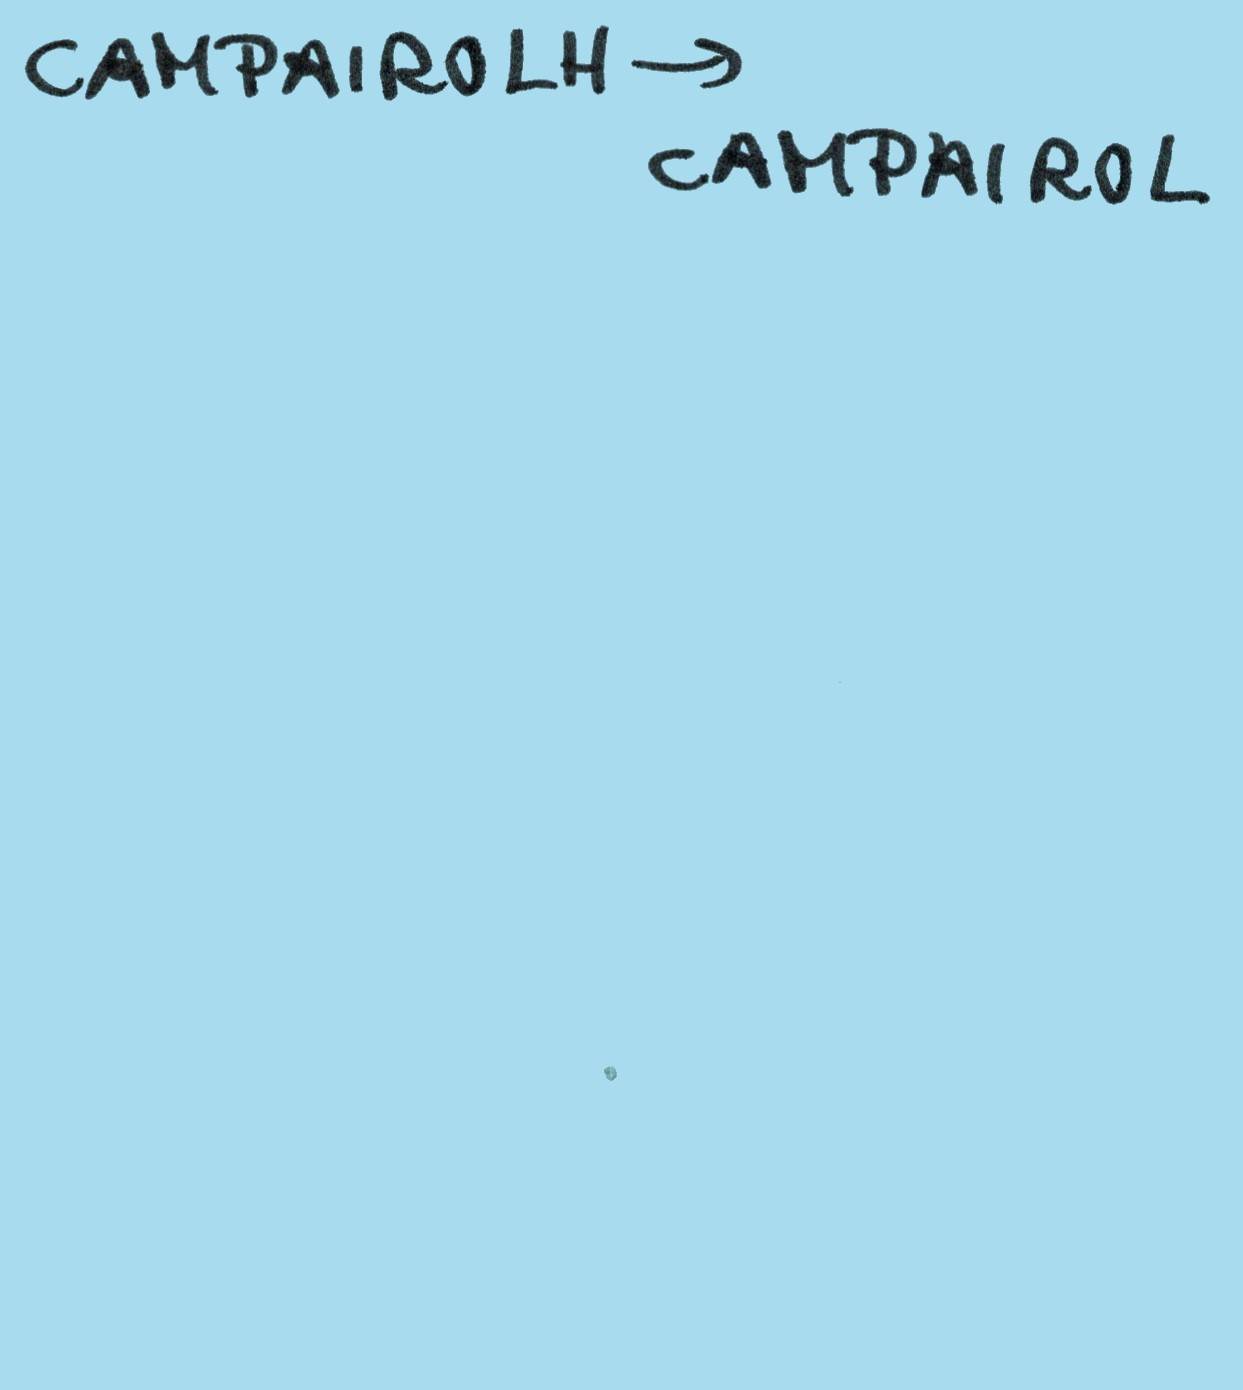 CAMPAIROLH →
CAMPAIROL